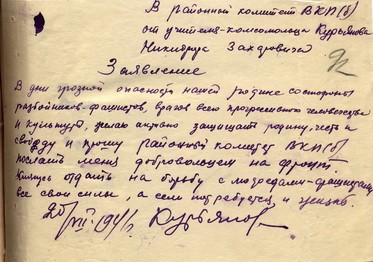 В районный комитет ВКП(б)
от учителя-комсомольца Курьянова
Никифора Захаровича
Заявление
В дни грозной опасности нашей родине со стороны
разбойников-фашистов, врагов всего прогрессивного человечества
и культуры, желаю активно защищать родину, честь и
свободу и прошу районный комитет ВКП(б)
послать меня добровольцем на фронт.
Клянусь отдать на борьбу с людоедами-фашистами
все свои силы, а если потребуется, и жизнь.
1941 г.